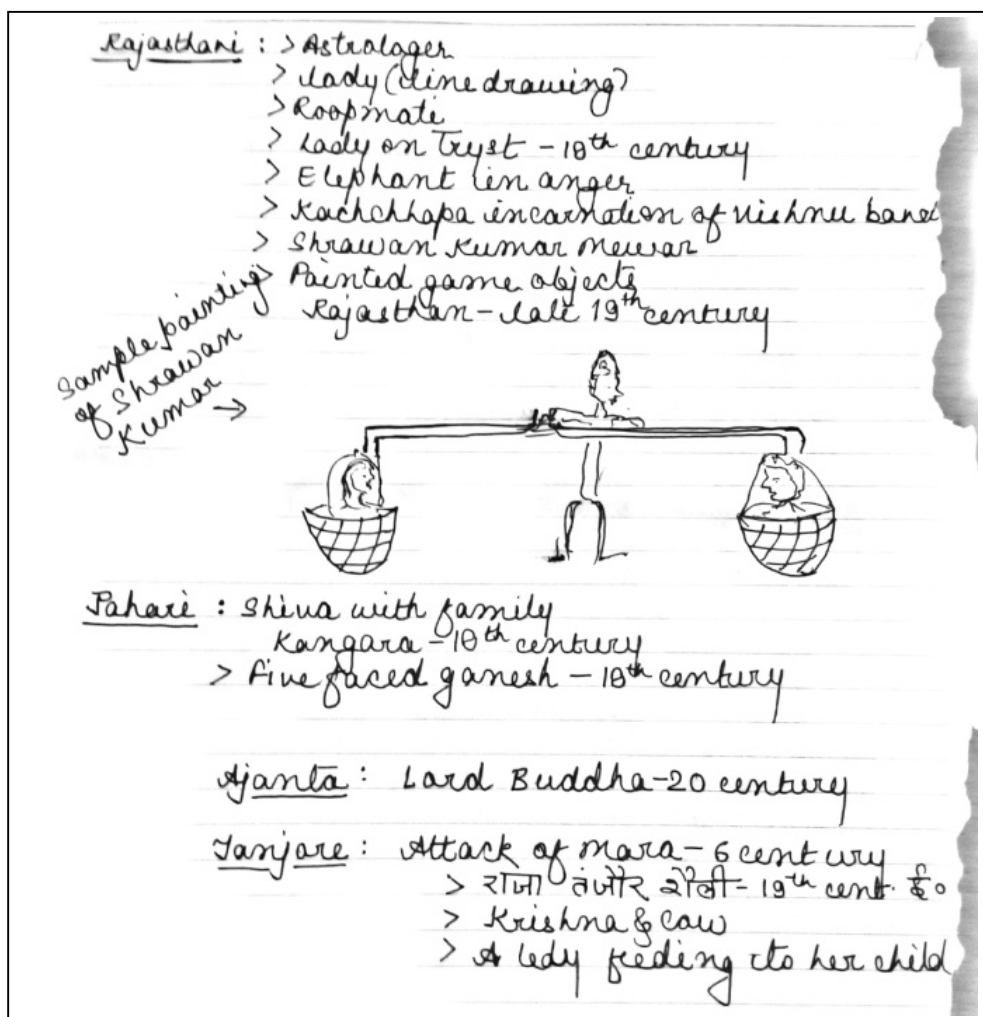 Rajasthani : > Astrologer
> Lady (line drawing)
> Roopmati
> Lady on Tryst - 18th century
> Elephant in anger
> Kachchhapa incarnation of Vishnu
> Shrawan Kumar Mewar
> Painted game objects
Rajasthan - late 19th century
Sample painting
of Shrawan
Kumar →
Pahari : Shiva with family
Kangara - 18th century
> Five faced ganesh - 18th century
Ajanta : Lord Buddha - 20 century
Tanjore : Attack of mara - 6 century
> राजा तंजौर शैली - 19th cent. ई०
> Krishna & cow
> A ledy feeding to her child